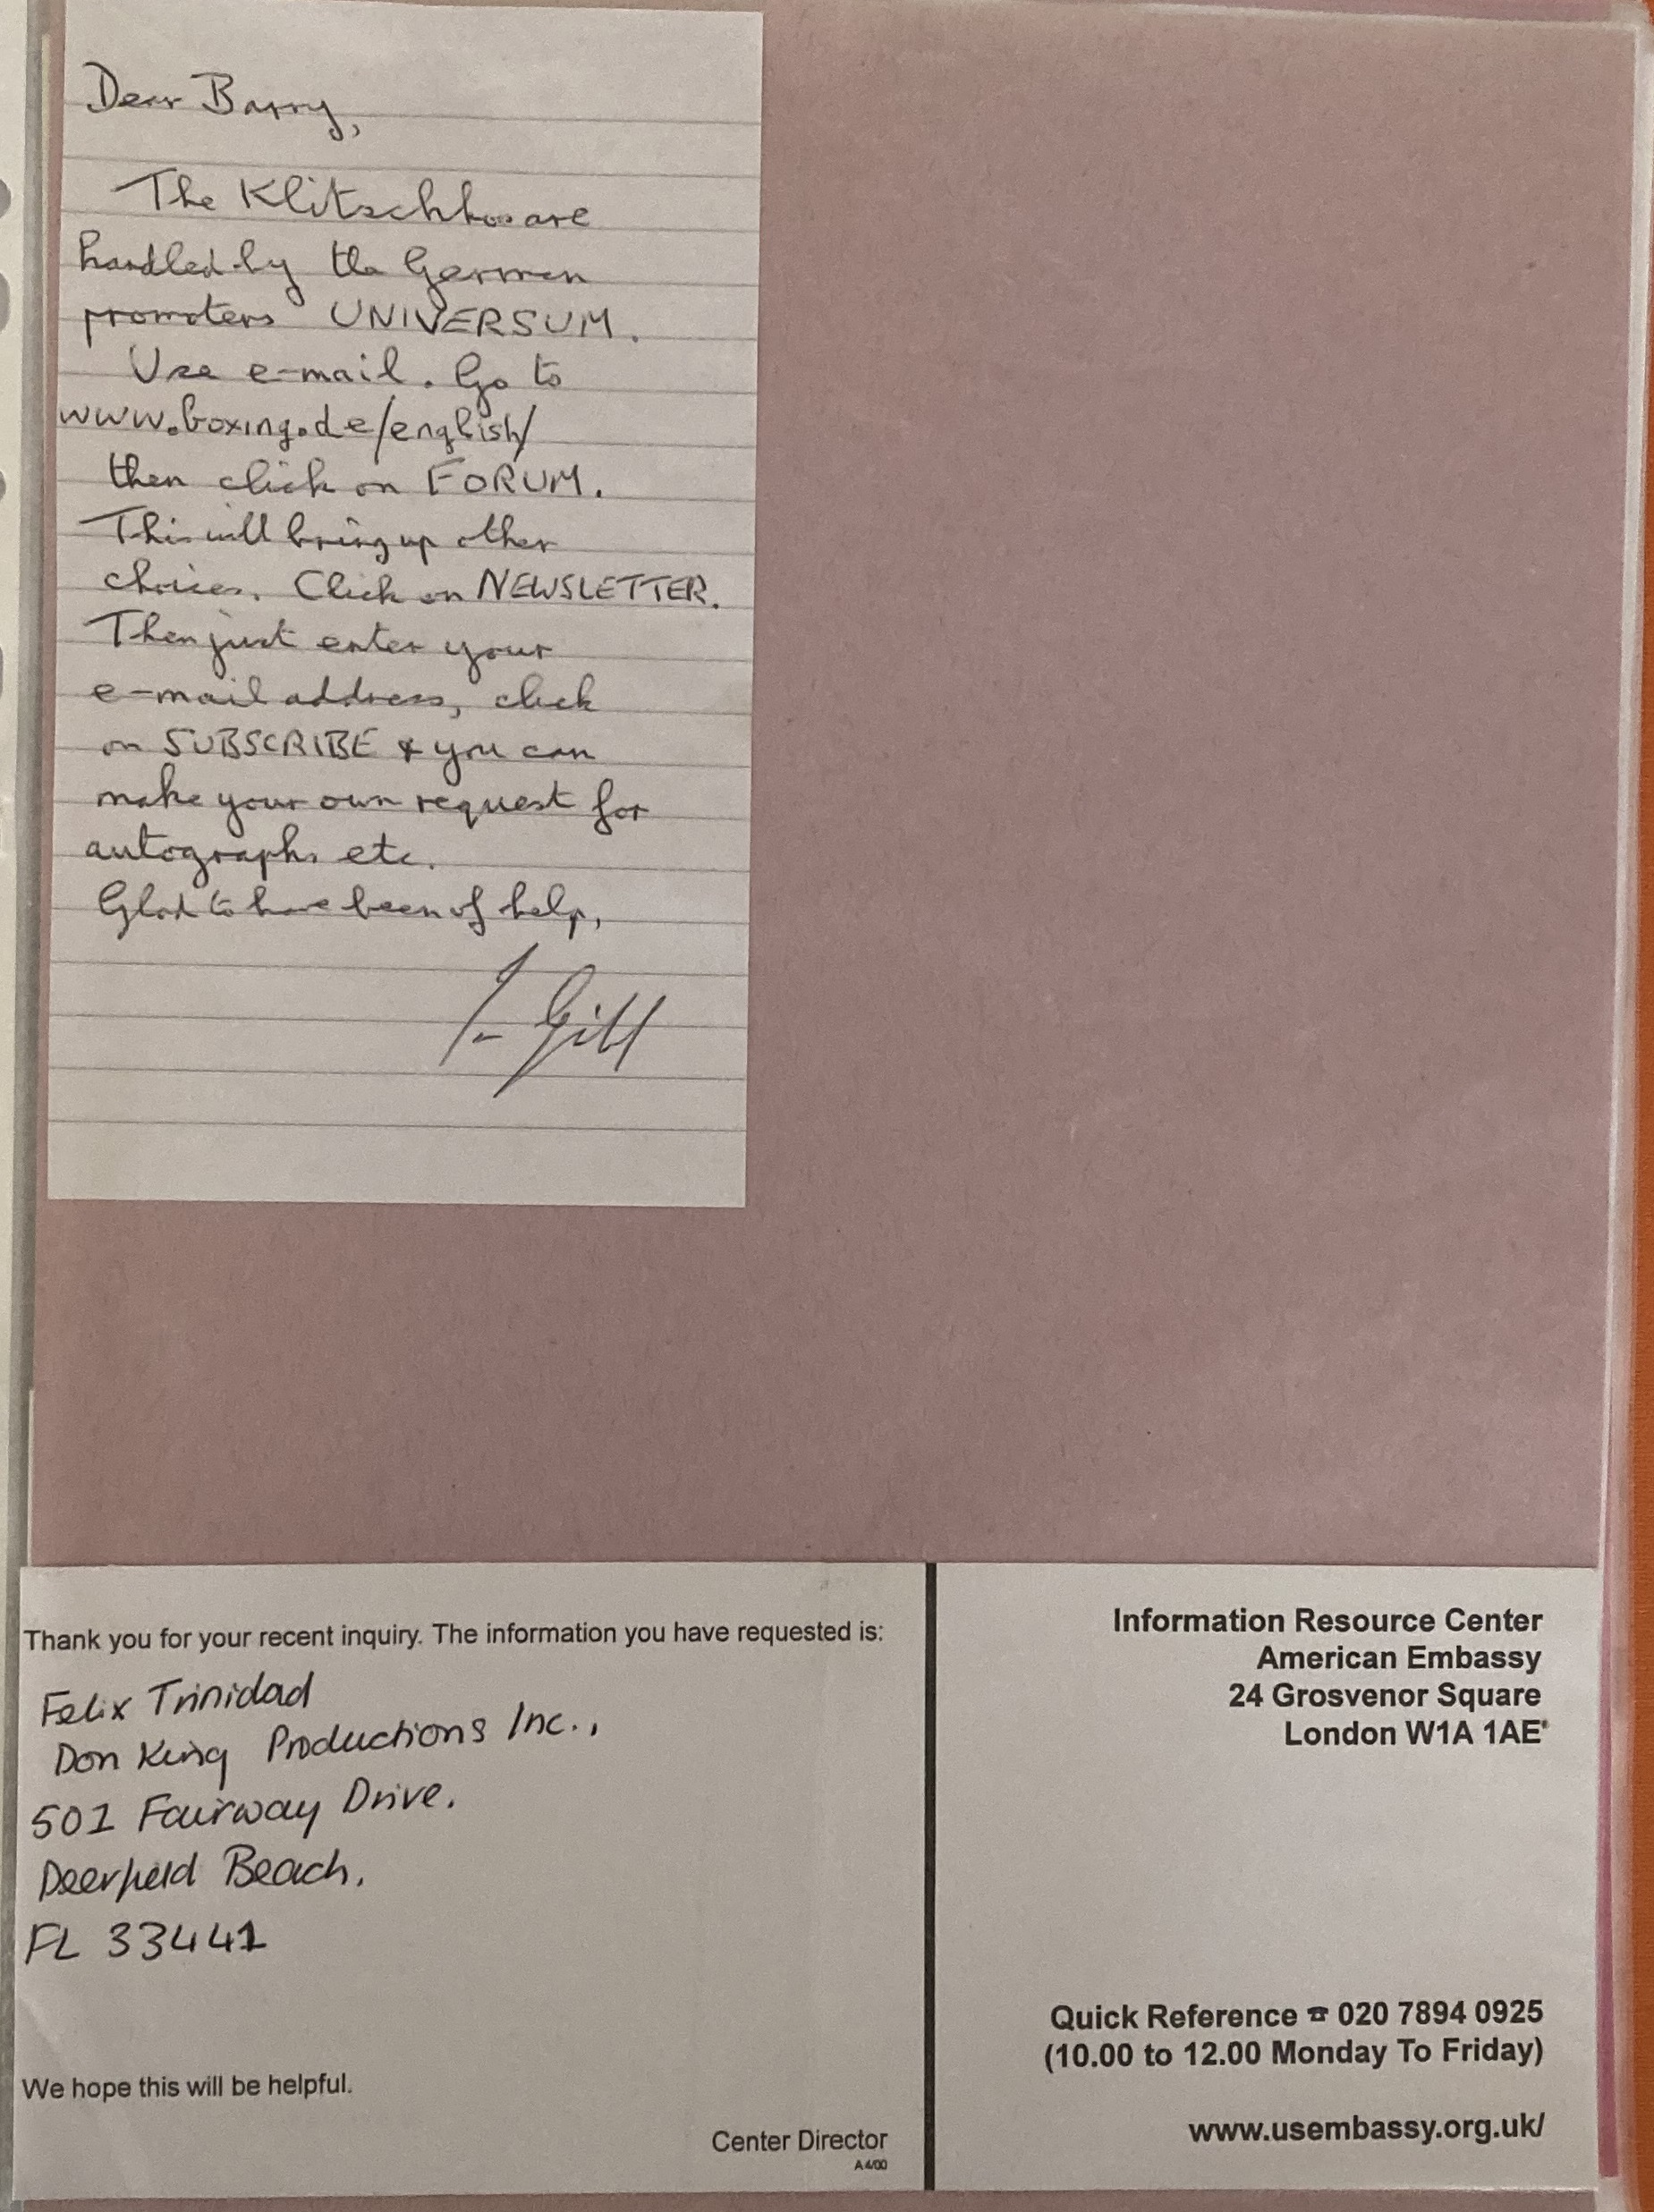 Dear Barry,
The Klitschkos are
handled by the German
promoters UNIVERSUM.
Use e-mail. Go to
www.boxing.de/english/
then click on FORUM.
This will bring up other
choices. Click on NEWSLETTER.
Then just enter your
e-mail address, click
on SUBSCRIBE & you can
make your own request for
autographs etc.
Glad to have been of help,
Ian Gill
Thank you for your recent inquiry. The information you have requested is:
Felix Trinidad
Don King Productions Inc.,
501 Fairway Drive.
Deerfield Beach,
FL 33441
We hope this will be helpful.
Center Director
A4/00
Information Resource Center
American Embassy
24 Grosvenor Square
London W1A 1AE
Quick Reference ☎ 020 7894 0925
(10.00 to 12.00 Monday To Friday)
www.usembassy.org.uk/